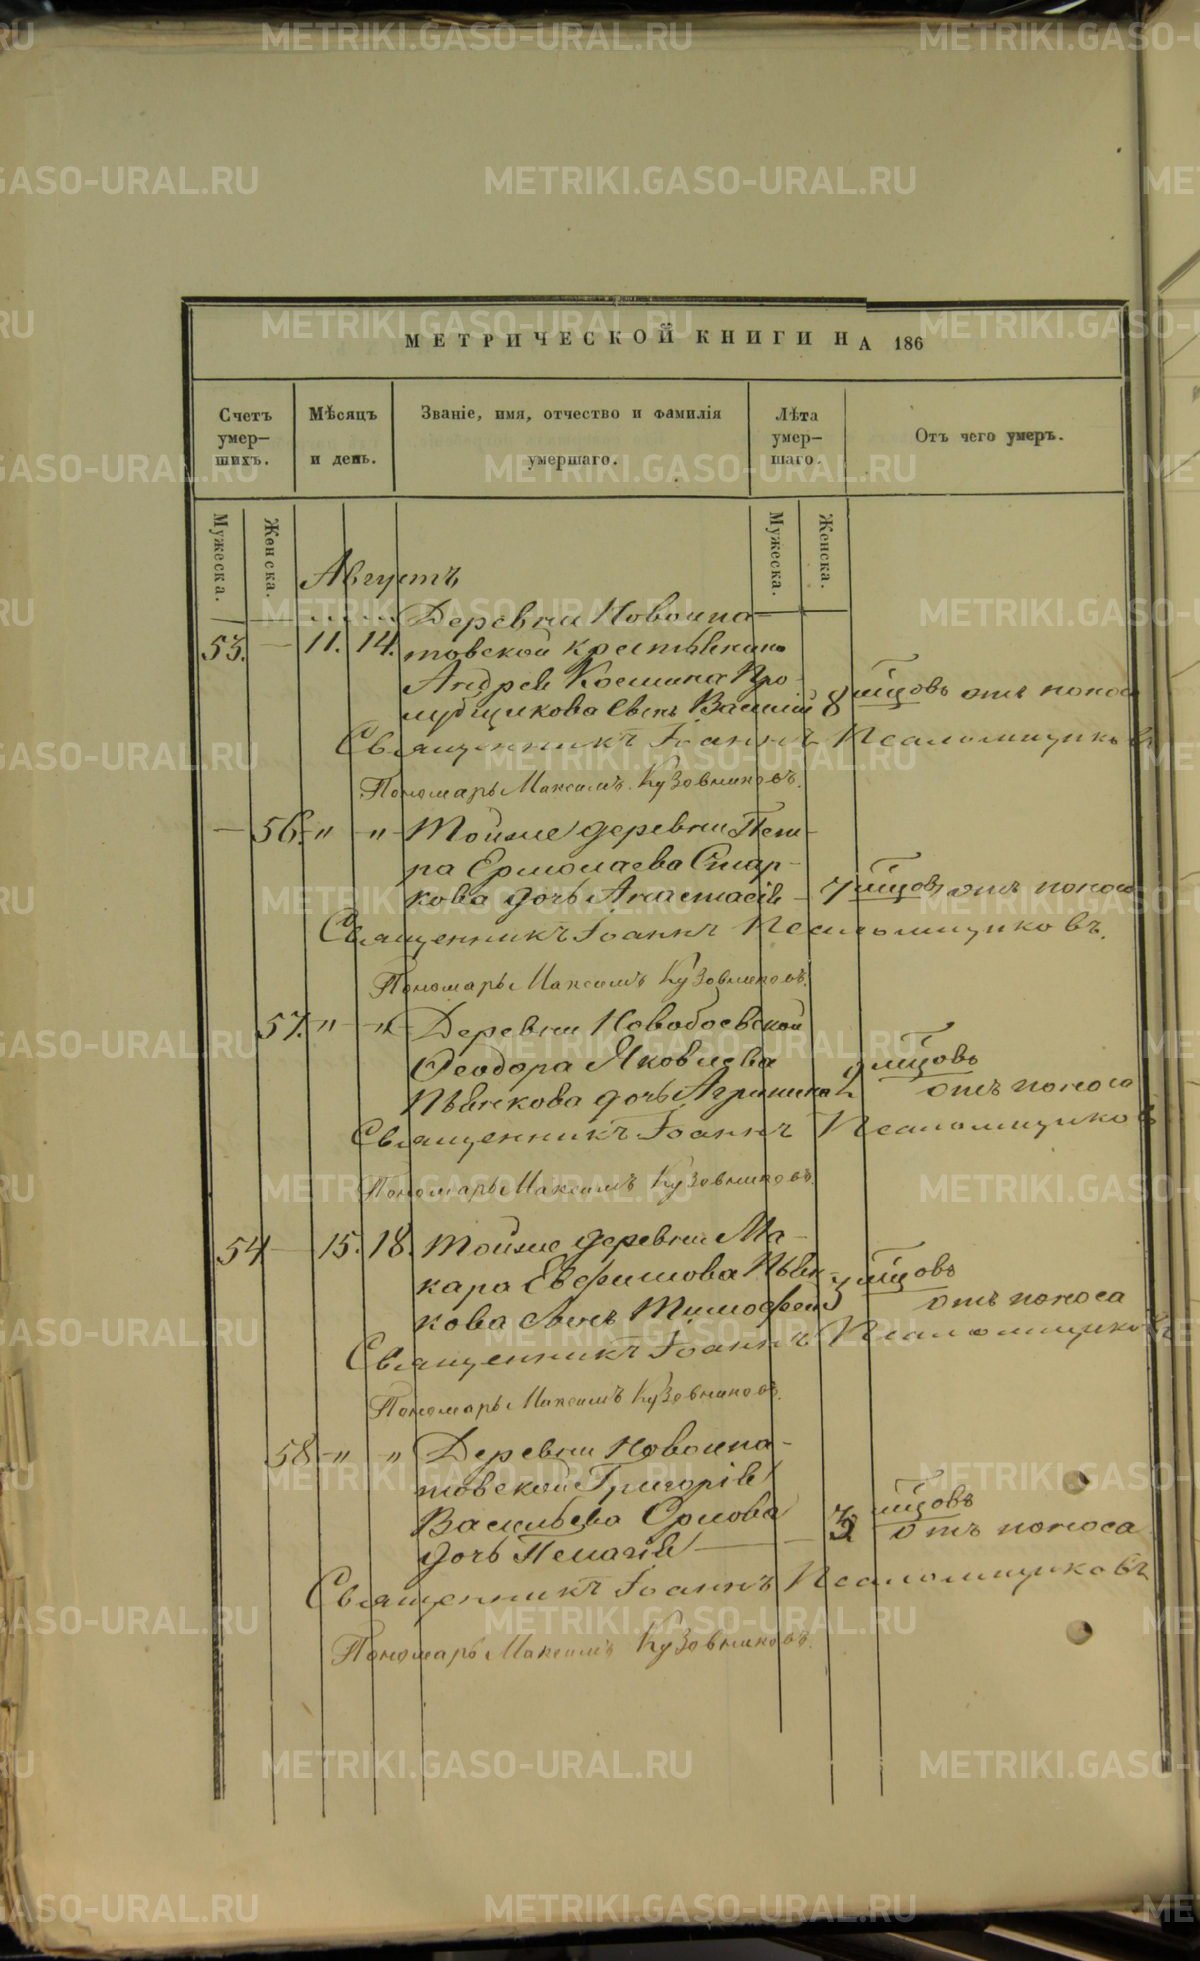 МЕТРИЧЕСКОЙ КНИГИ НА 186
Счетъ умер-шихъ.
Мѣсяцъ и день.
Званіе, имя, отчество и фамилія умершаго.
Лѣта умер-шаго.
Отъ чего умеръ.
Мужеска.
Женска.
Мужеска.
Женска.
Августъ
Деревни Новоипа-
53. — 11. 14. товской крестьянина
Андрея Косьмина Про-
лубщикова сынъ Василій 8 мѣсцовъ отъ поноса
Священникъ Іоаннъ Псаломщиковъ
Пономарь Максимъ Кузовниковъ.
— 56. " " Тойже деревни Пет-
ра Ермолаева Стар-
кова дочь Анастасія — 7 мѣсцовъ отъ поноса
Священникъ Іоаннъ Псаломщиковъ.
Пономарь Максимъ Кузовниковъ.
57. " " Деревни Новобоевской
Ѳеодора Яковлева
Пьянкова дочь Агрипина 2 мѣсцовъ
отъ поноса
Священникъ Іоаннъ Псаломщиковъ
Пономарь Максимъ Кузовниковъ.
54 — 15. 18. Тойже деревни Ма-
кара Евфимова Пьян-
кова сынъ Тимофей 3 мѣсцовъ
отъ поноса
Священникъ Іоаннъ Псаломщиковъ
Пономарь Максимъ Кузовниковъ.
58 — " " Деревни Новоипа-
товской Григорія
Васильева Орлова
дочь Пелагія — мѣсцовъ
отъ поноса
Священникъ Іоаннъ Псаломщиковъ
Пономарь Максимъ Кузовниковъ.
METRIKI.GASO-URAL.RU